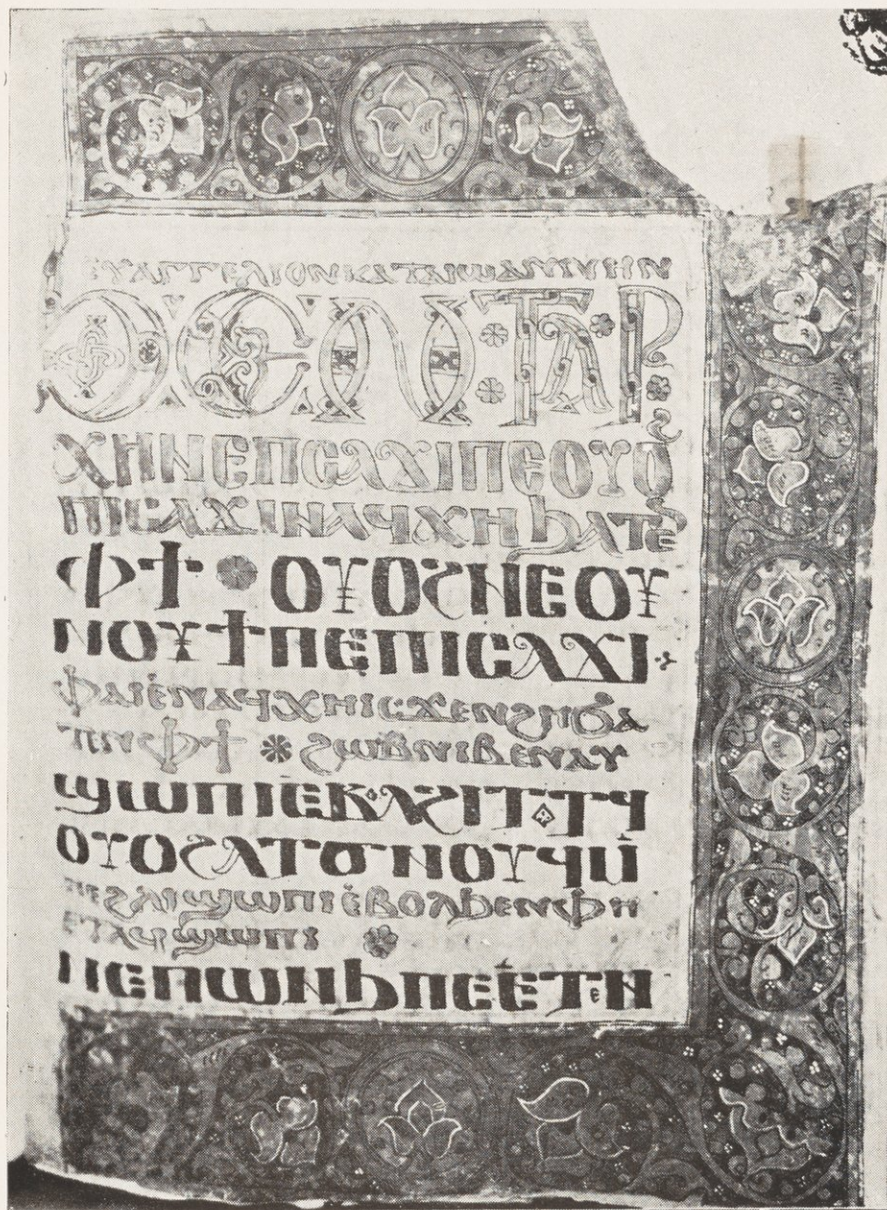 ⲉⲩⲁⲅⲅⲉⲗⲓⲟⲛ ⲕⲁⲧⲁ
ϧⲉⲛ ϯⲁⲣ
ⲭⲏ ⲛⲉ ⲡⲥⲁϫⲓ ⲡⲉ ⲟⲩⲟϩ
ⲡⲓⲥⲁϫⲓ ⲛⲁϥⲭⲏ ϧⲁⲧⲉⲛ
ⲫϯ ⲟⲩⲟϩ ⲛⲉ ⲟⲩ
ⲛⲟⲩϯ ⲡⲉ ⲡⲓⲥⲁϫⲓ
ⲫⲁⲓ ⲉⲛⲁϥⲭⲏ ⲓⲥϫⲉⲛ ϩⲏ ϧⲁ
ⲧⲉⲛ ⲫϯ ϩⲱⲃ ⲛⲓⲃⲉⲛ ⲁⲩ
ϣⲱⲡⲓ ⲉⲃⲟⲗ ϩⲓⲧⲟⲧϥ
ⲟⲩⲟϩ ⲁⲧϭⲛⲟⲩϥ ⲙ̀
ⲡⲉ ϩⲗⲓ ϣⲱⲡⲓ ⲉ̀ⲃⲟⲗ ϧⲉⲛ ⲫⲏ
ⲉⲧⲁϥϣⲱⲡⲓ
ⲛⲉ ⲡⲱⲛϧ ⲡⲉ ⲉⲧⲉⲛ